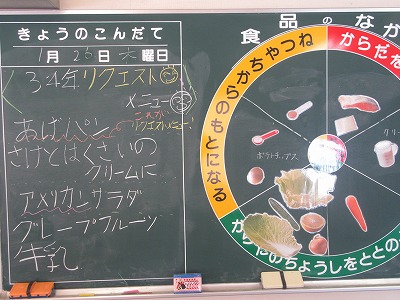 きょうのこんだて
1月26日 木曜日
3・4年 リクエスト
メニュー
あげパン
これが
リクエストメニュー!
さけとはくさいの
クリームに
アメリカンサラダ
グレープフルーツ
牛乳
食品のなか
からだを
ちからやねつ
のもとになる
からだのちょうしをととの
ポテトチップス
クリー